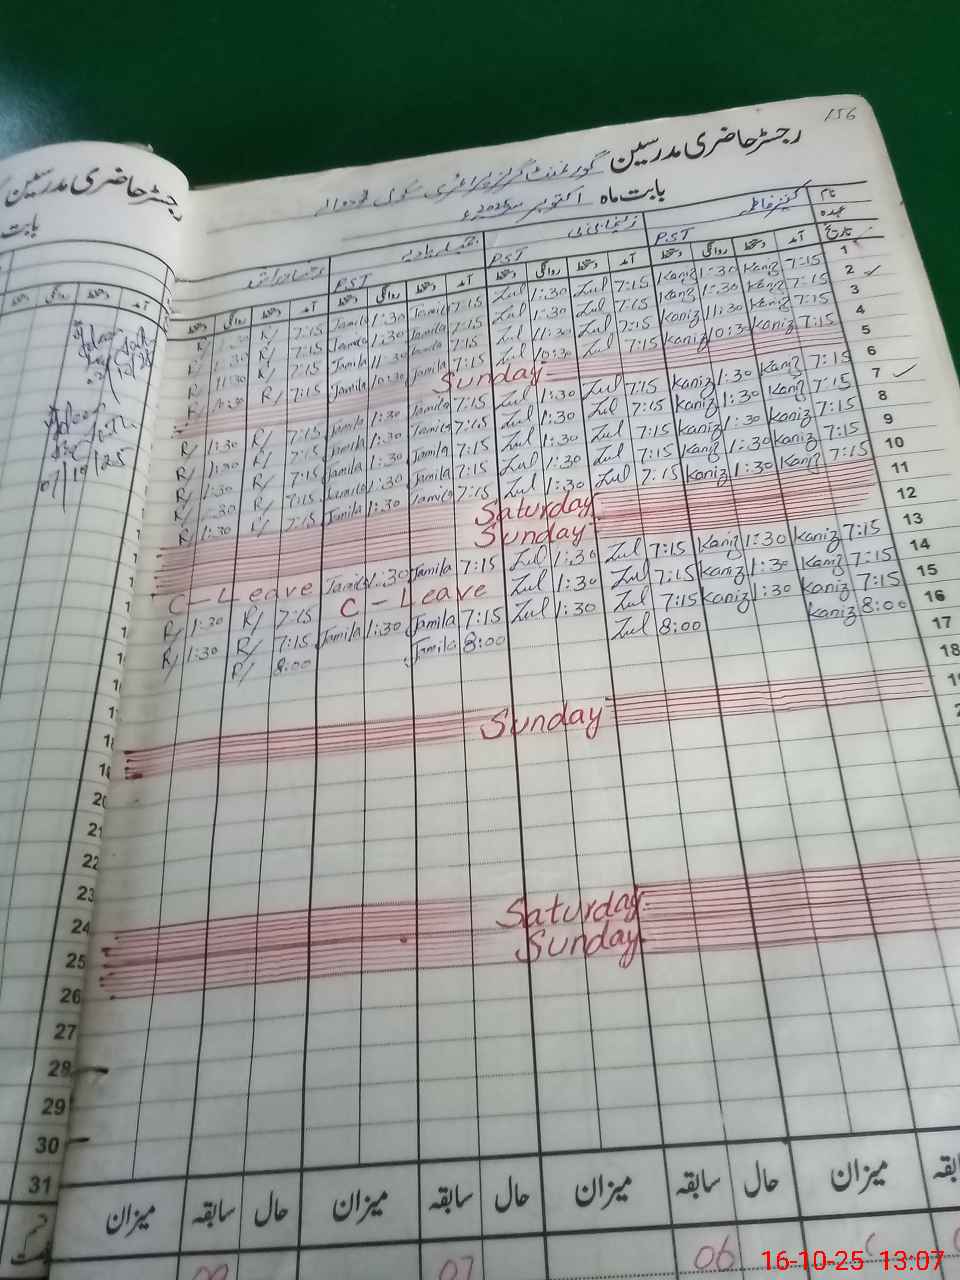 156
رجسٹر حاضری مدرسین
گورنمنٹ گرلز پرائمری سکول
بابت ماہ اکتوبر 2025ء
نام کنیز فاطمہ
عہدہ P.S.T P.S.T P.S.T
تاریخ آمد دستخط روانگی دستخط آمد دستخط روانگی دستخط آمد دستخط روانگی دستخط آمد دستخط روانگی دستخط
1 7:15 Kaniz 1:30 Kaniz 7:15 Zul 1:30 Zul 7:15 Jamila 1:30 Jamila 7:15 R/ 1:30 R/
2 7:15 Kaniz 1:30 Kaniz 7:15 Zul 1:30 Zul 7:15 Jamila 1:30 Jamila 7:15 R/ 1:30 R/
3 7:15 Kaniz 11:30 Kaniz 7:15 Zul 11:30 Zul 7:15 Jamila 11:30 Jamila 7:15 R/ 11:30 R/
4 7:15 Kaniz 10:30 Kaniz 7:15 Zul 10:30 Zul 7:15 Jamila 10:30 Jamila 7:15 R/ 10:30 R/
5 Sunday
6 7:15 Kaniz 1:30 Kaniz 7:15 Zul 1:30 Zul 7:15 Jamila 1:30 Jamila 7:15 R/ 1:30 R/
7 7:15 Kaniz 1:30 Kaniz 7:15 Zul 1:30 Zul 7:15 Jamila 1:30 Jamila 7:15 R/ 1:30 R/
8 7:15 Kaniz 1:30 Kaniz 7:15 Zul 1:30 Zul 7:15 Jamila 1:30 Jamila 7:15 R/ 1:30 R/
9 7:15 Kaniz 1:30 Kaniz 7:15 Zul 1:30 Zul 7:15 Jamila 1:30 Jamila 7:15 R/ 1:30 R/
10 7:15 Kaniz 1:30 Kaniz 7:15 Zul 1:30 Zul 7:15 Jamila 1:30 Jamila 7:15 R/ 1:30 R/
11 Saturday
12 Sunday
13 7:15 Kaniz 1:30 Kaniz 7:15 Zul 1:30 Zul 7:15 Jamila 1:30 Jamila C-Leave
14 7:15 Kaniz 1:30 Kaniz 7:15 Zul 1:30 Zul C-Leave 7:15 R/ 1:30 R/
15 7:15 Kaniz 1:30 Kaniz 7:15 Zul 1:30 Zul 7:15 Jamila 1:30 Jamila 7:15 R/ 1:30 R/
16 8:00 Kaniz 8:00 Zul 8:00 Jamila 8:00 R/
17
18
19 Sunday
20
21
22
23
24
25 Saturday
26 Sunday
27
28
29
30
31
میزان سابقہ حال میزان سابقہ حال میزان سابقہ حال میزان سابقہ
07 06
رجسٹر حاضری مدرسین
بابت
آمد دستخط روانگی دستخط
07/19/25
16-10-25 13:07